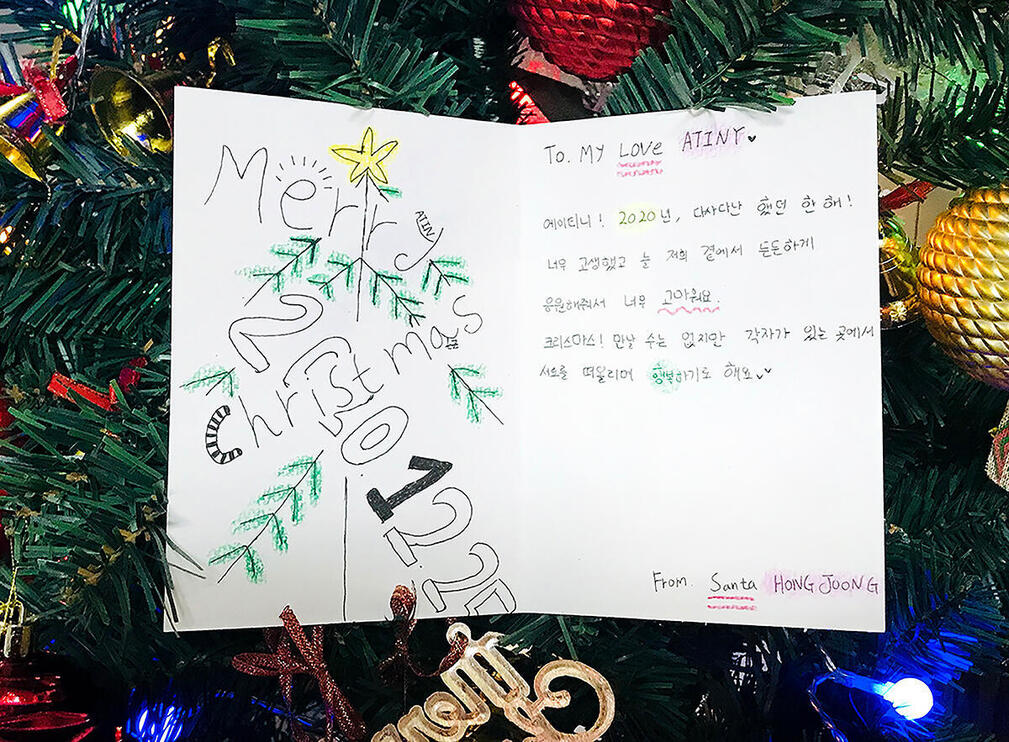 Merry
ATINY
Christmas
2020.12.25
To. MY LOVE ATINY
에이티니! 2020년, 다사다난 했던 한 해!
너무 고생했고 늘 저희 곁에서 든든하게
응원해줘서 너무 고마워요.
크리스마스! 만날 수는 없지만 각자가 있는 곳에서
서로를 떠올리며 행복하기로 해요
From. Santa HONGJOONG
Merry